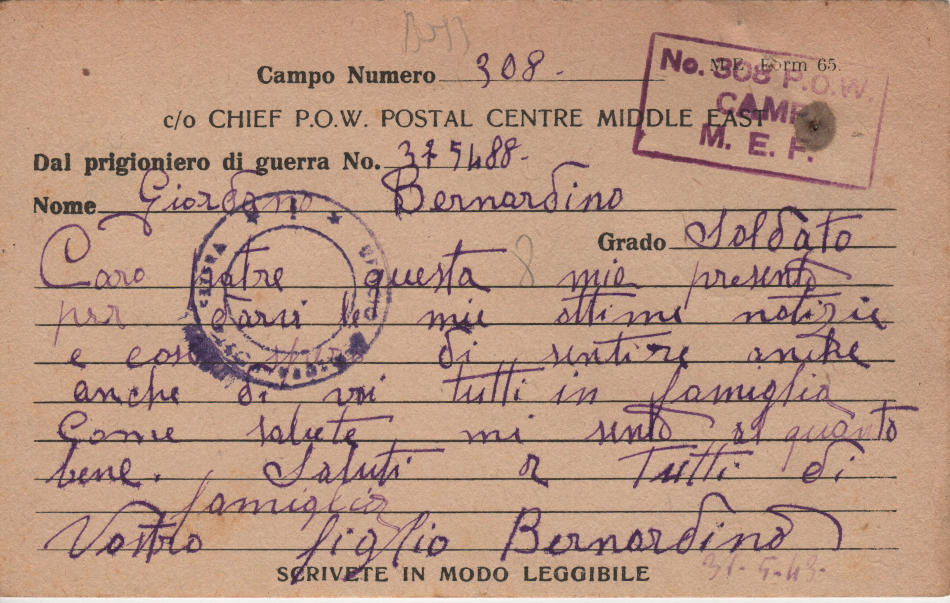 M.E. Form 65.
Campo Numero 308.
No. 308 P.O.W.
CAMP
M. E. F.
c/o CHIEF P.O.W. POSTAL CENTRE MIDDLE EAST
Dal prigioniero di guerra No. 375488.
Nome Giordano Bernardino
Grado Soldato
Caro patre questa mie presento
per darvi le mie ottime notizie
e cosi spero di sentire anche
anche di voi tutti in famiglia
Come salute mi sento al quanto
bene. Saluti a tutti di
famiglia
Vostro figlio Bernardino
31-5-43.
SCRIVETE IN MODO LEGGIBILE